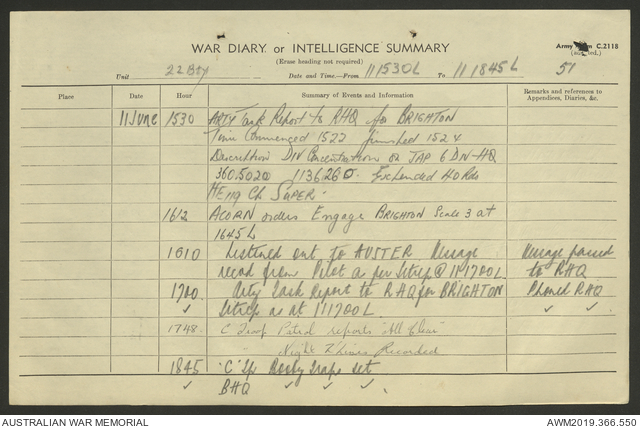 WAR DIARY or INTELLIGENCE SUMMARY
Army Form C.2118
(Erase heading not required)
Unit 22 Bty Date and Time—From 111530L To 111845L 51
Place Date Hour Summary of Events and Information Remarks and references to Appendices, Diaries, &c.
11 June 1530 Arty Task Report to RHQ for BRIGHTON
Time Commenced 1522 finished 1524
Description DIV Concentration on JAP 6 DIV HQ
360.5020 1136260. Expended 40 Rds
HE 119 Ch SUPER.
1612 ACORN orders Engage BRIGHTON Scale 3 at
1645 L
1610 Listened out to AUSTER Message Message passed
recd from Pilot as per Sitrep @ 111700L to RHQ
1700 Arty Task Report to RHQ for BRIGHTON Phoned RHQ
✓ Sitrep as at 111700L. ✓ ✓
1748. C Troop Patrol reports "All Clear"
Night Lines Recorded
1845 'C' Tp Booby traps set
✓ BHQ ✓ ✓ ✓
AUSTRALIAN WAR MEMORIAL AWM2019.366.550